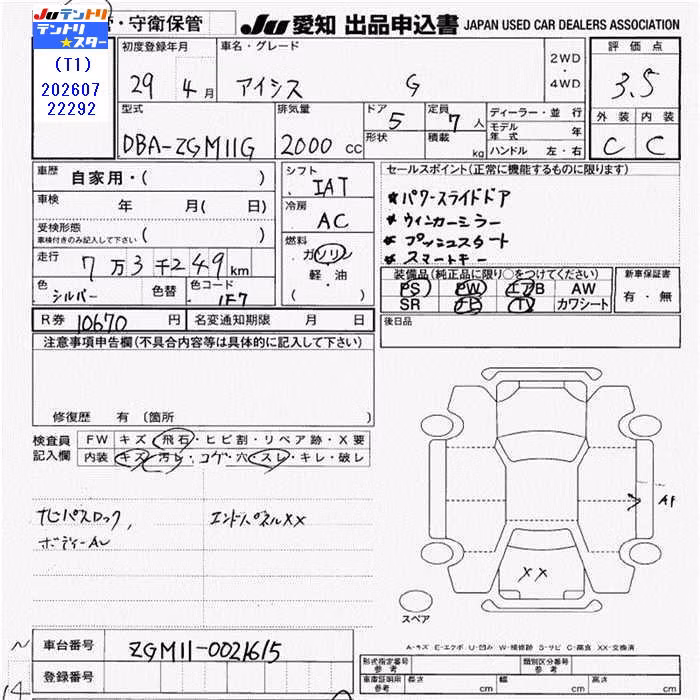 Juテントリ
テントリ★スター
(T1)
202607
22292
・守衛保管
JU 愛知 出品申込書 JAPAN USED CAR DEALERS ASSOCIATION
初度登録年月 車名・グレード 2WD・4WD 評価点
29年4月 アイシス G 3.5
外装 内装
C C
型式 排気量 ドア 形状 定員 積載
DBA-ZGM11G 2000cc 5 7人 kg
ディーラー・並行
モデル年式 年
ハンドル 左・右
車歴 自家用・( )
車検 年 月( 日)
受検形態 車検付きのみ記入して下さい ( )
走行 7万3千249km
色 シルバー 色替 色コード 1F7
シフト IAT
冷房 AC
燃料 ガソリン 軽・油 ( )
セールスポイント(正常に機能するものに限ります)
★パワースライドドア
★ウィンカーミラー
★プッシュスタート
★スマートキー
装備品(純正品に限り○をつけてください) 新車保証書
PS PW エアB AW 有・無
SR ナビ TV カワシート
後日品
R券 10670円 名変通知期限 月 日
注意事項申告欄(不具合内容等は具体的に記入して下さい)
修復歴 有 〔箇所 〕
検査員記入欄 FW キズ・飛石・ヒビ割・リペア跡・X要
内装 キズ・汚レ・コゲ・穴・スレ・キレ・破レ
ナビパスロック, エンドパネルXX
ボディーAU
AP
XX
スペア
A-キズ E-エクボ U-凹み W-補修跡 S-サビ C-腐食 XX-交換済
車台番号 ZGM11-0021615
登録番号
型式指定番号 参考 類別区分番号 参考
車庫証明用 参考 長さ cm 幅 cm 高さ cm
14